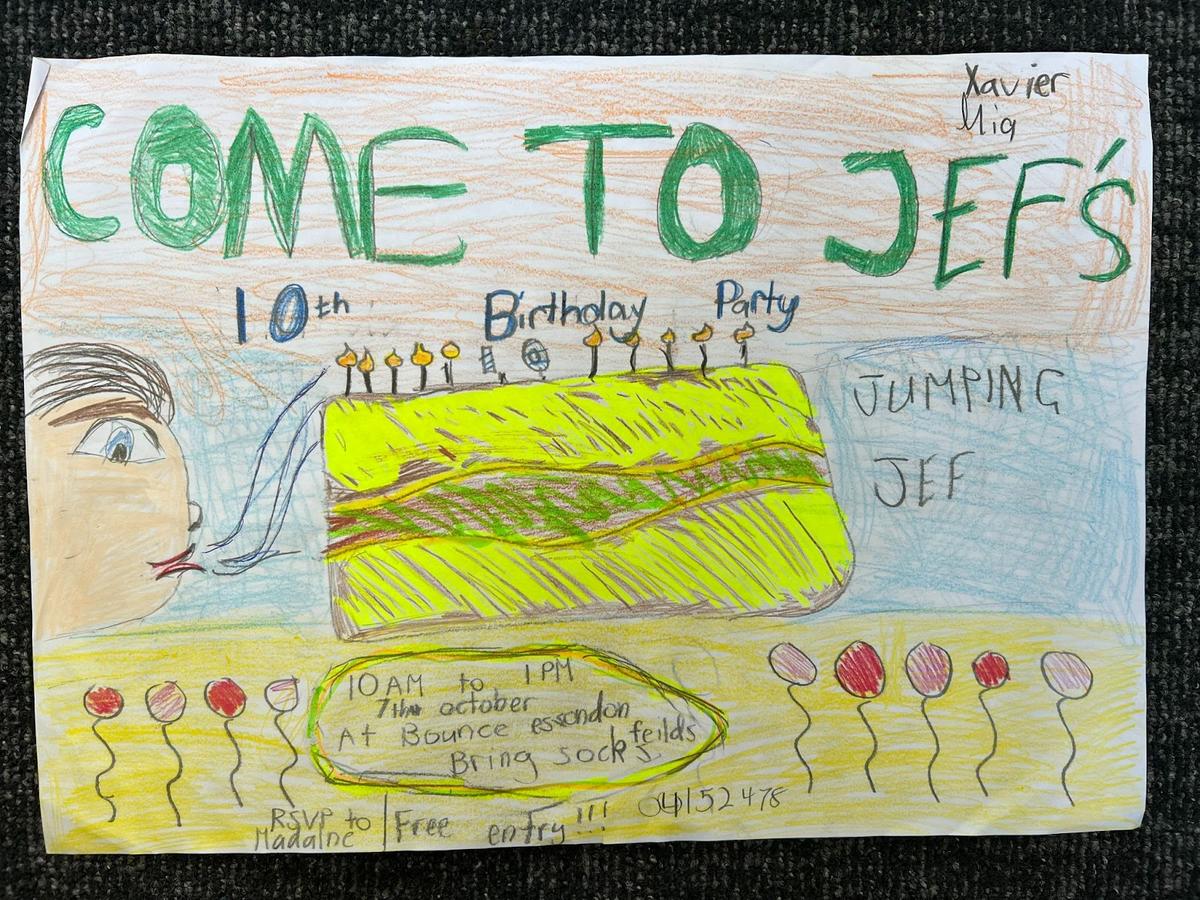 Xavier
Mia
COME TO JEF'S
10th Birthday Party
JUMPING
JEF
10 AM to 1 PM
7th october
At Bounce essendon
feilds
Bring socks
RSVP to
Madalne
Free entry!!!
04152478